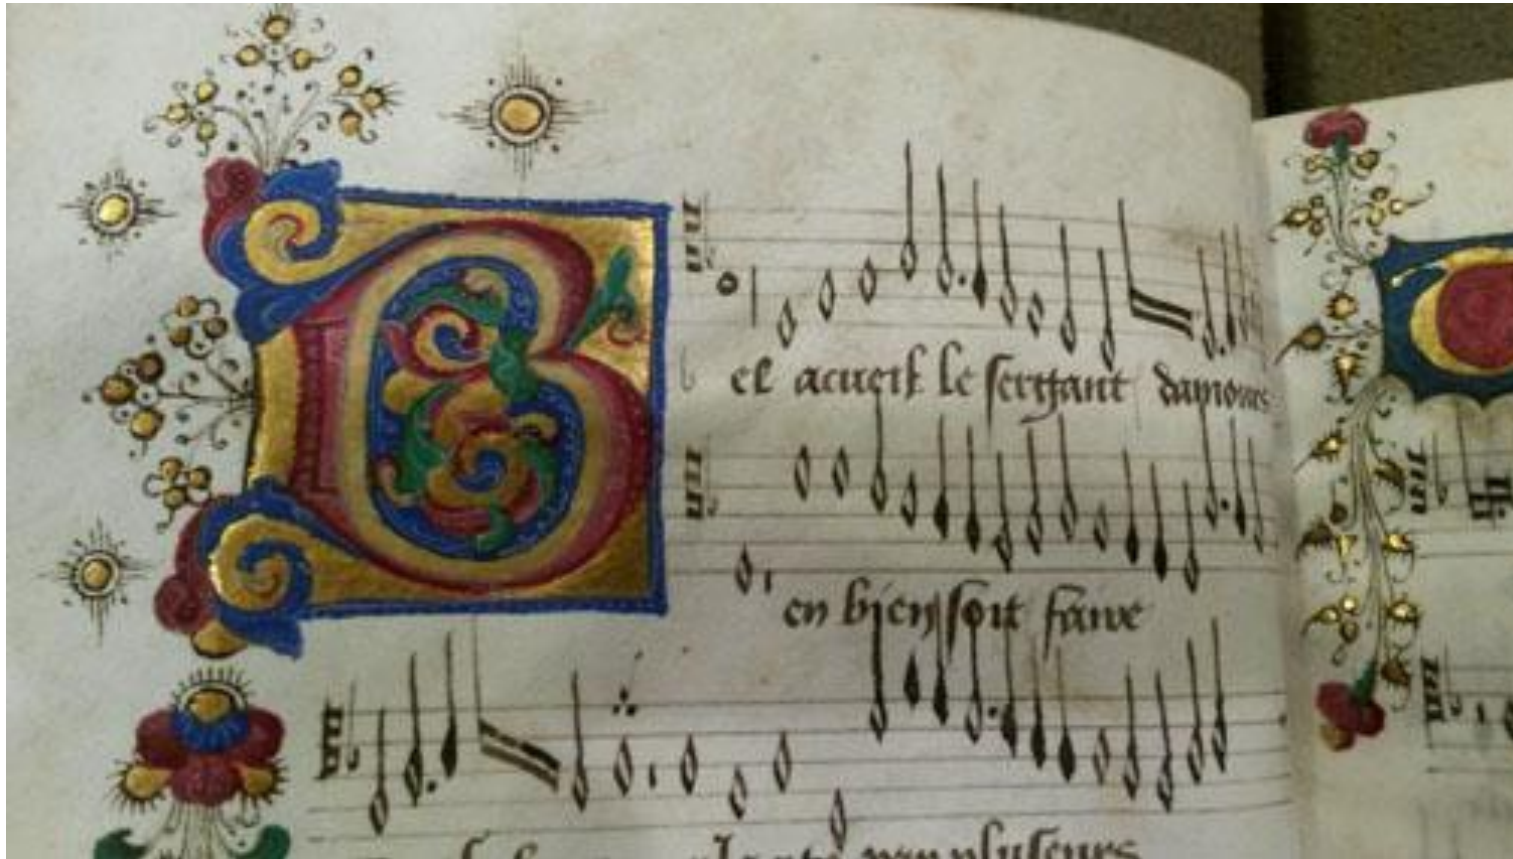 Bel acueil le sergant damours
en bien soit faire
par pluseurs